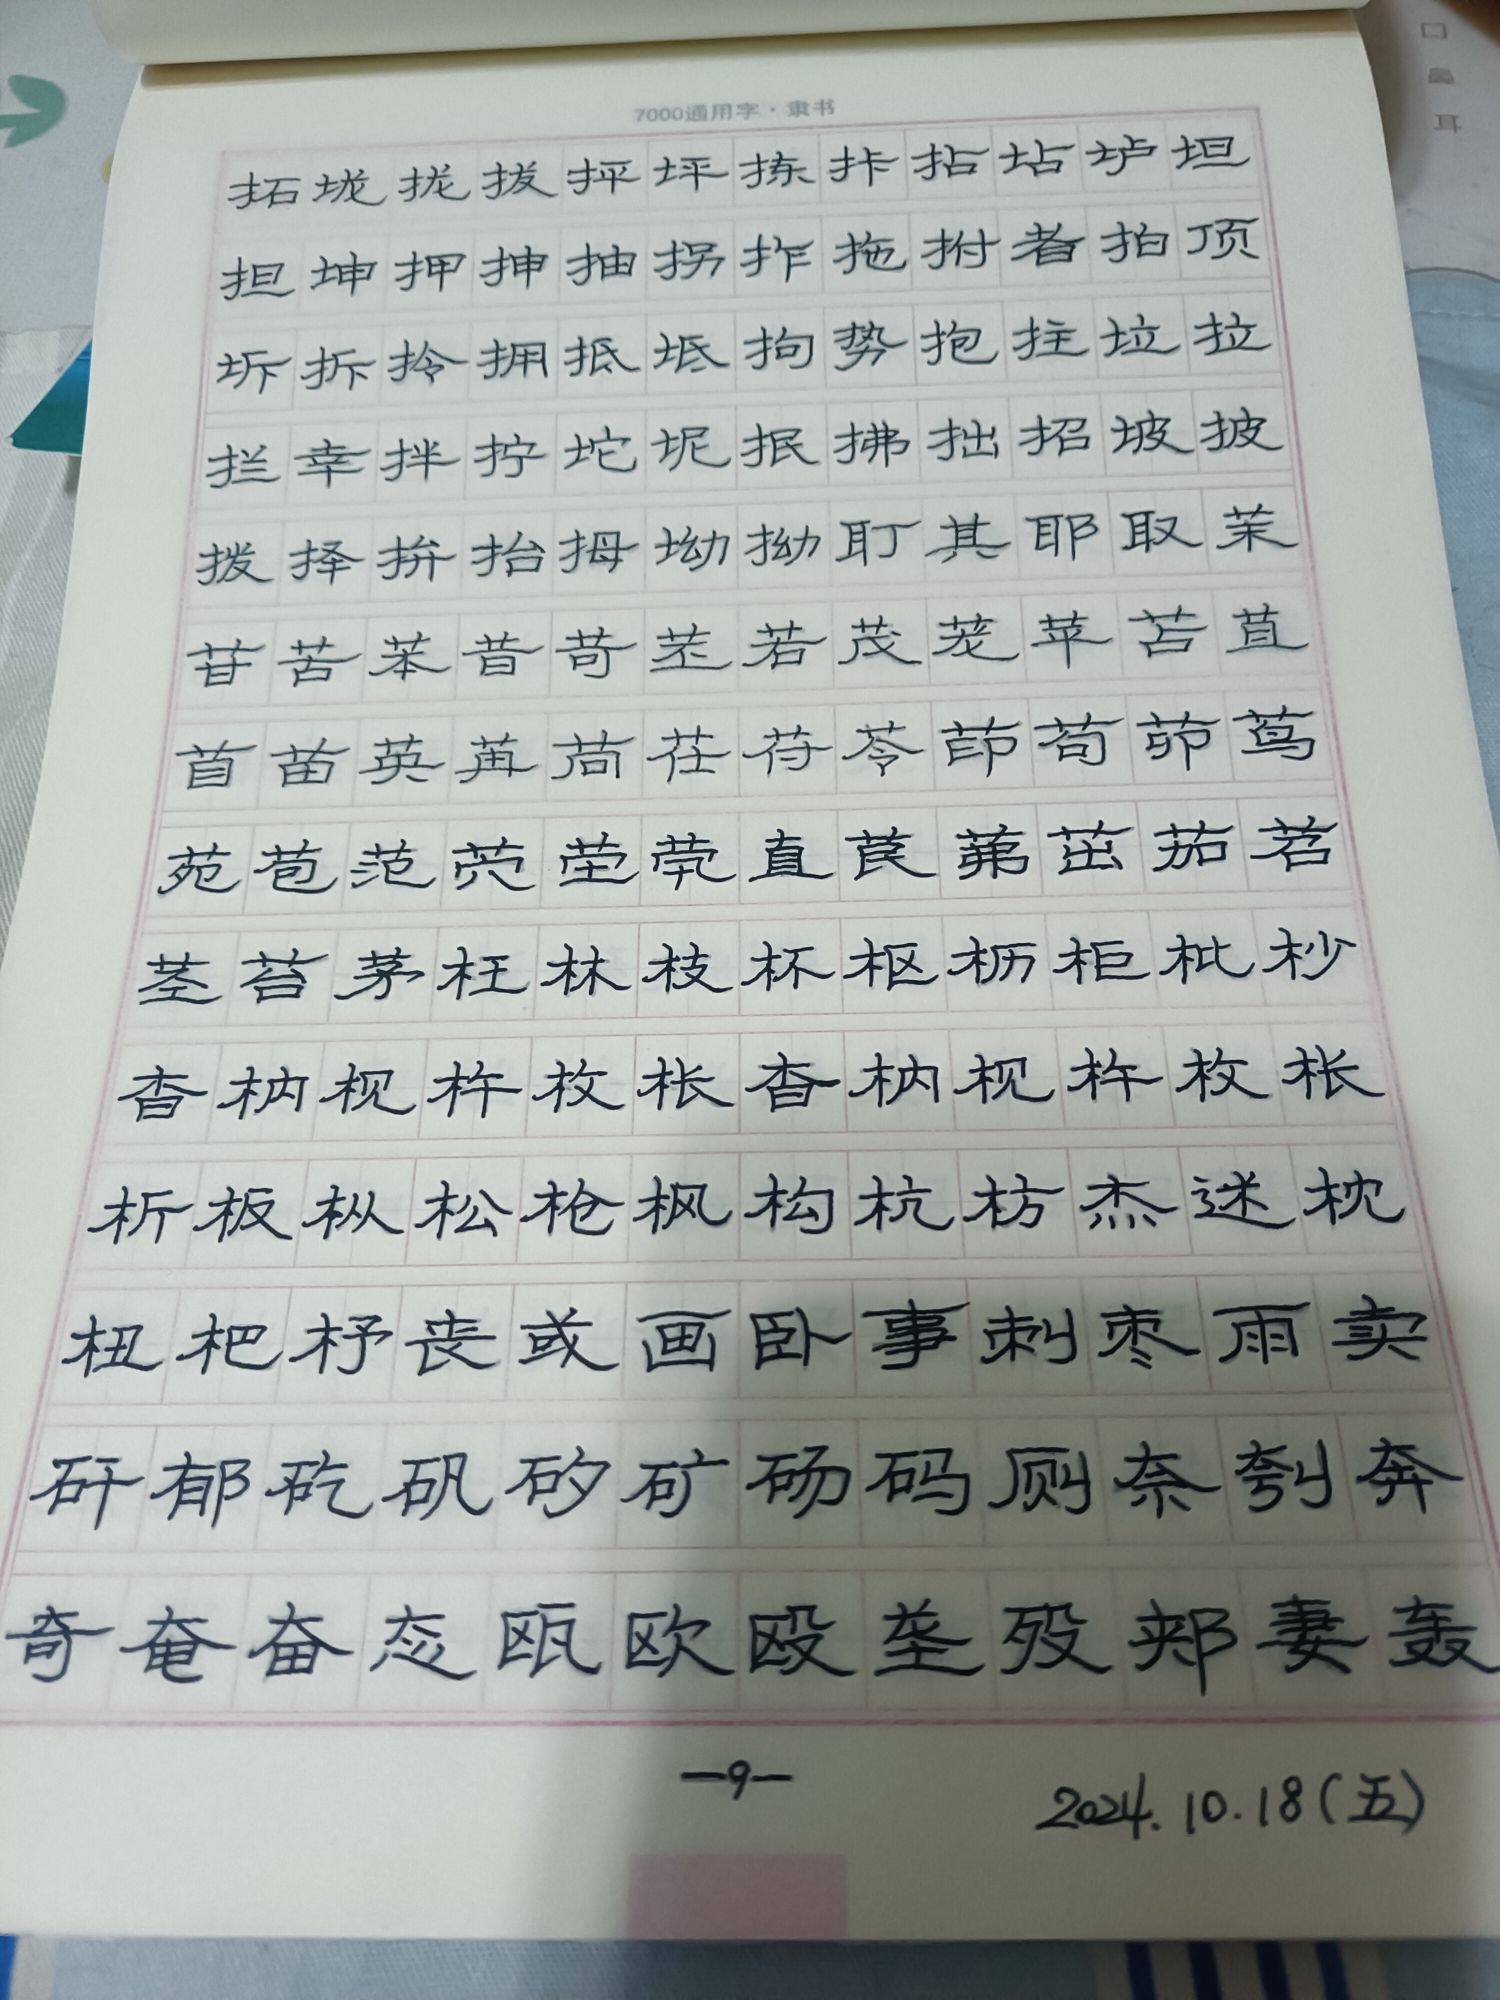 7000通用字·隶书
拓垅拢拔抨坪拣拤拈坫垆坦
担坤押抻抽拐拃拖拊者拍顶
坼拆拎拥抵坻拘势抱拄垃拉
拦幸拌拧坨坭抿拂拙招坡披
拨择拚抬拇坳拗耵其耶取茉
苷苦苯昔苛苤若茂茏苹苫苴
苜苗英苒苘茌苻苓茚苟茆茑
苑苞范茓茔茕直茛茀茁茄苕
茎苔茅枉林枝杯枢枥柜枇杪
杳枘枧杵枚枨杳枘枧杵枚枨
析板枞松枪枫构杭枋杰述枕
杻杷杼丧或画卧事刺枣雨卖
矸郁矻矾矽矿砀码厕奈刳奔
奇奄奋态瓯欧殴垄殁郏妻轰
—9—
2024.10.18(五)